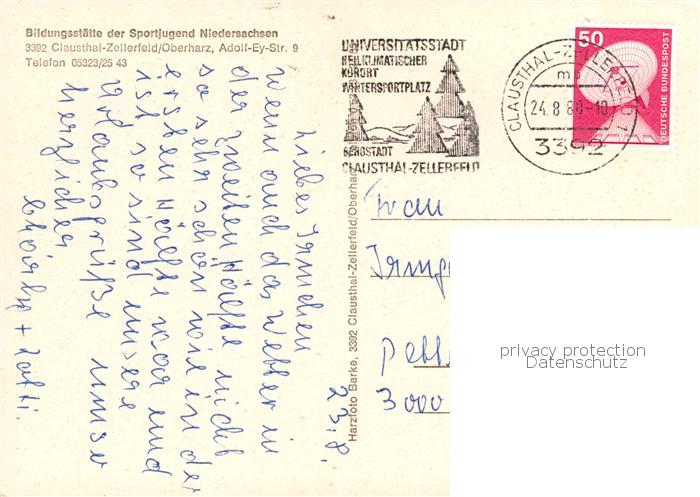 Bildungsstätte der Sportjugend Niedersachsen
3392 Clausthal-Zellerfeld/Oberharz, Adolf-Ey-Str. 9
Telefon 05323/25 43
UNIVERSITÄTSSTADT
HEILKLIMATISCHER
KURORT
WINTERSPORTPLATZ
BERGSTADT
CLAUSTHAL-ZELLERFELD
CLAUSTHAL-ZELLERFELD 1
mc
24.8.80-10
3392
50
DEUTSCHE BUNDESPOST
Harzfoto Barke, 3392 Clausthal-Zellerfeld/Oberharz
23.8.
Liebes Irmchen
wenn auch das Wetter in
der zweiten Hälfte nicht
so sehr schön wie in der
ersten Hälfte war und
ist so sind unsere
Urlaubsgrüße umso
herzlicher
+ Kathi.
Frau
Irmg
3000
privacy protection
Datenschutz